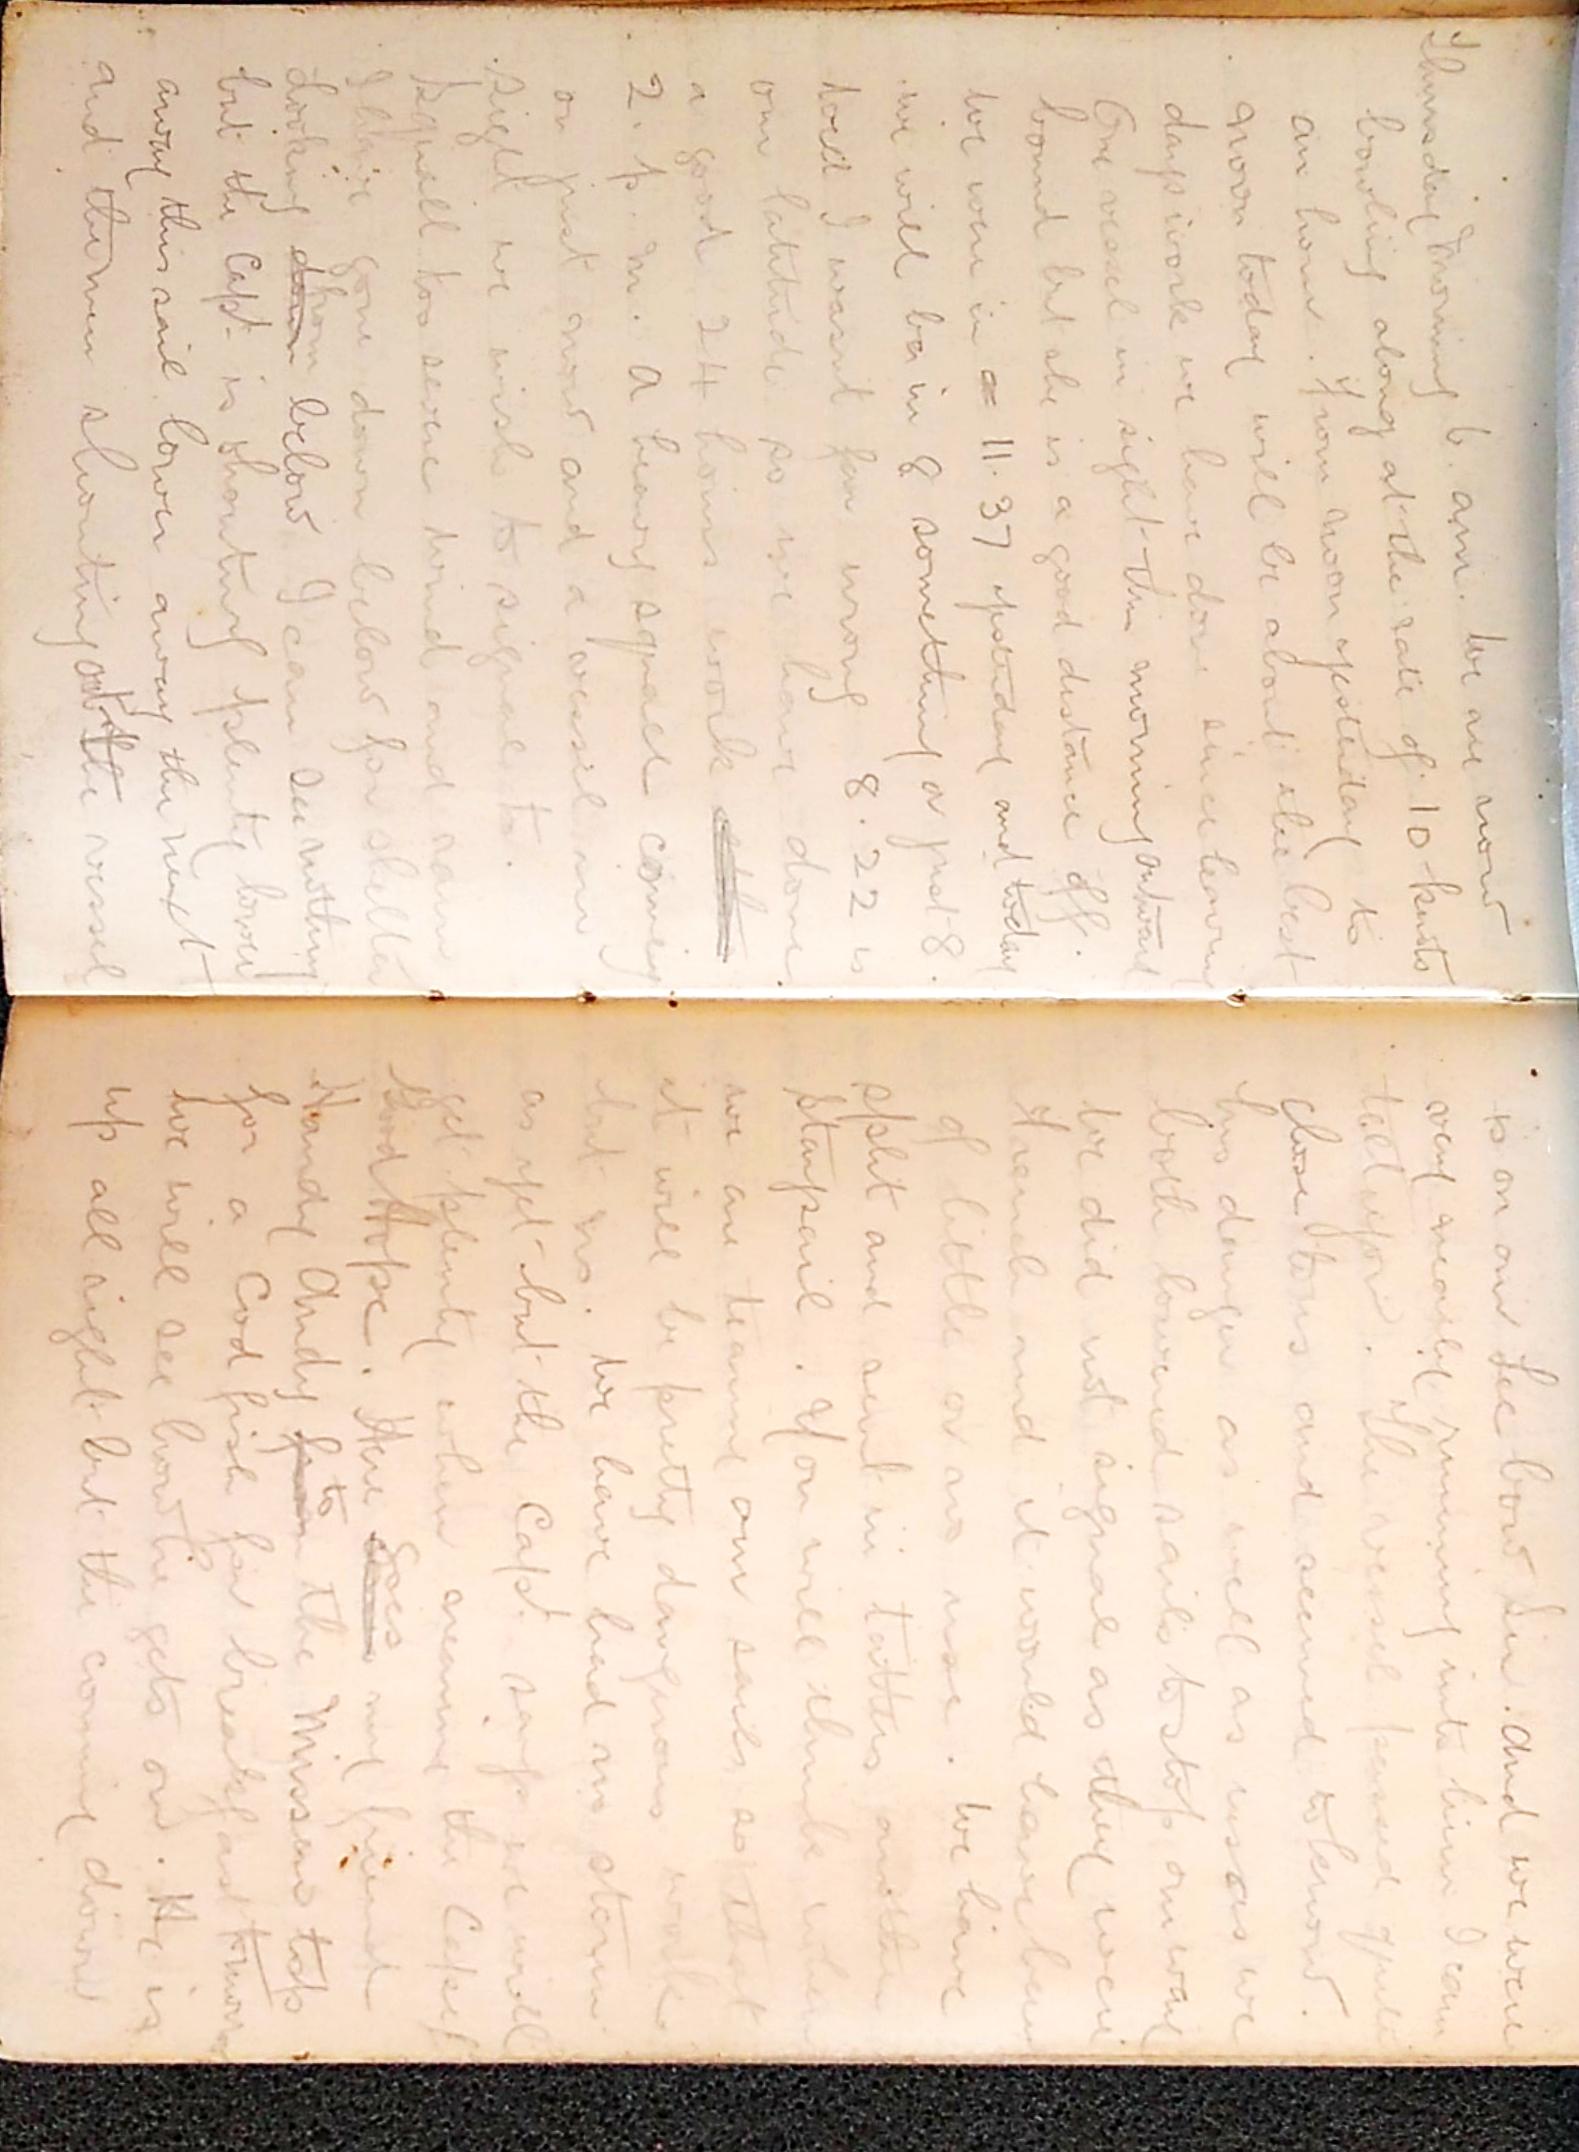 Thursday Morning 6. am. We are now
bowling along at the rate of 10 knots
an hour. From noon yesterday to
noon today will be about the best
days work we have done since leaving
One vessel in sight this morning outward
bound but she is a good distance off.
We were in 11.37 yesterday and today
we will be in 8 something or just 8.
told I wasnt far wrong 8.22 is
our latitude so we have done
a good 24 hours work
2. p. m. A heavy squall coming
on just now and a vessel in
sight we wish to signal to.
Squall too severe wind and rain
I have gone down below for shelter
Looking from below I can see nothing
but the Capt. is shouting plenty lower
away this sail lower away the next
and the men shouting out the vessel
is on our Lee bow Sir. And we were
very nearly running into him I can
tell you. The vessel passed quite
close to us and seemed to know
his danger as well as us as we
both lowered sails to stop our way
We did not signal as they were
French and it would have been
of little or no use. We have
split and sent in tatters another
staysail. You will think when
we are tearing our sails so that
it will be pretty dangerous work
but no. We have had no storm
as yet but the Capt. says we will
get plenty when nearing the Cape of
Good Hope. Here goes my friend
Handy Andy to the Missens top
for a Cod fish for breakfast
we will see how he gets on. He is
up all right but the coming down